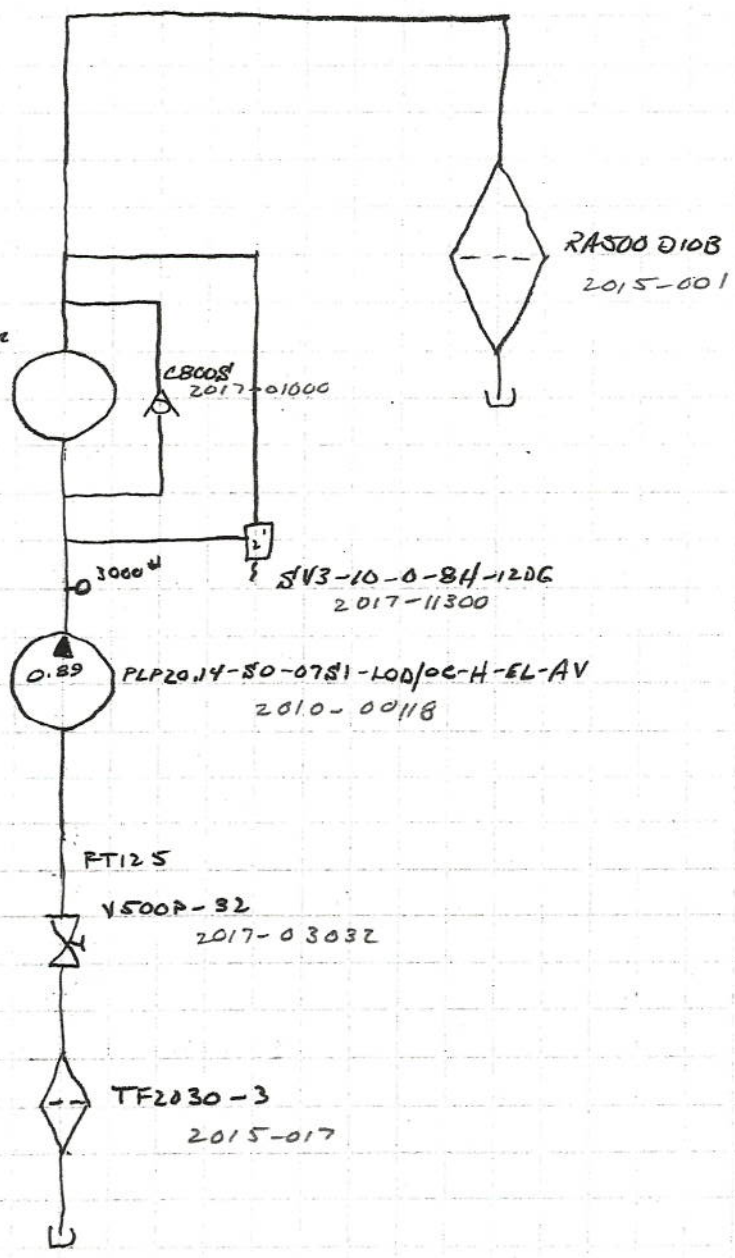 RA500 D10B
2015-001
C800S
2017-01000
2'
3000#
SV3-10-0-8H-12DG
2017-11300
0.89
PLP20.14-S0-07S1-LOD/OC-H-EL-AV
2010-00118
FT125
V500P-32
2017-03032
TF2030-3
2015-017